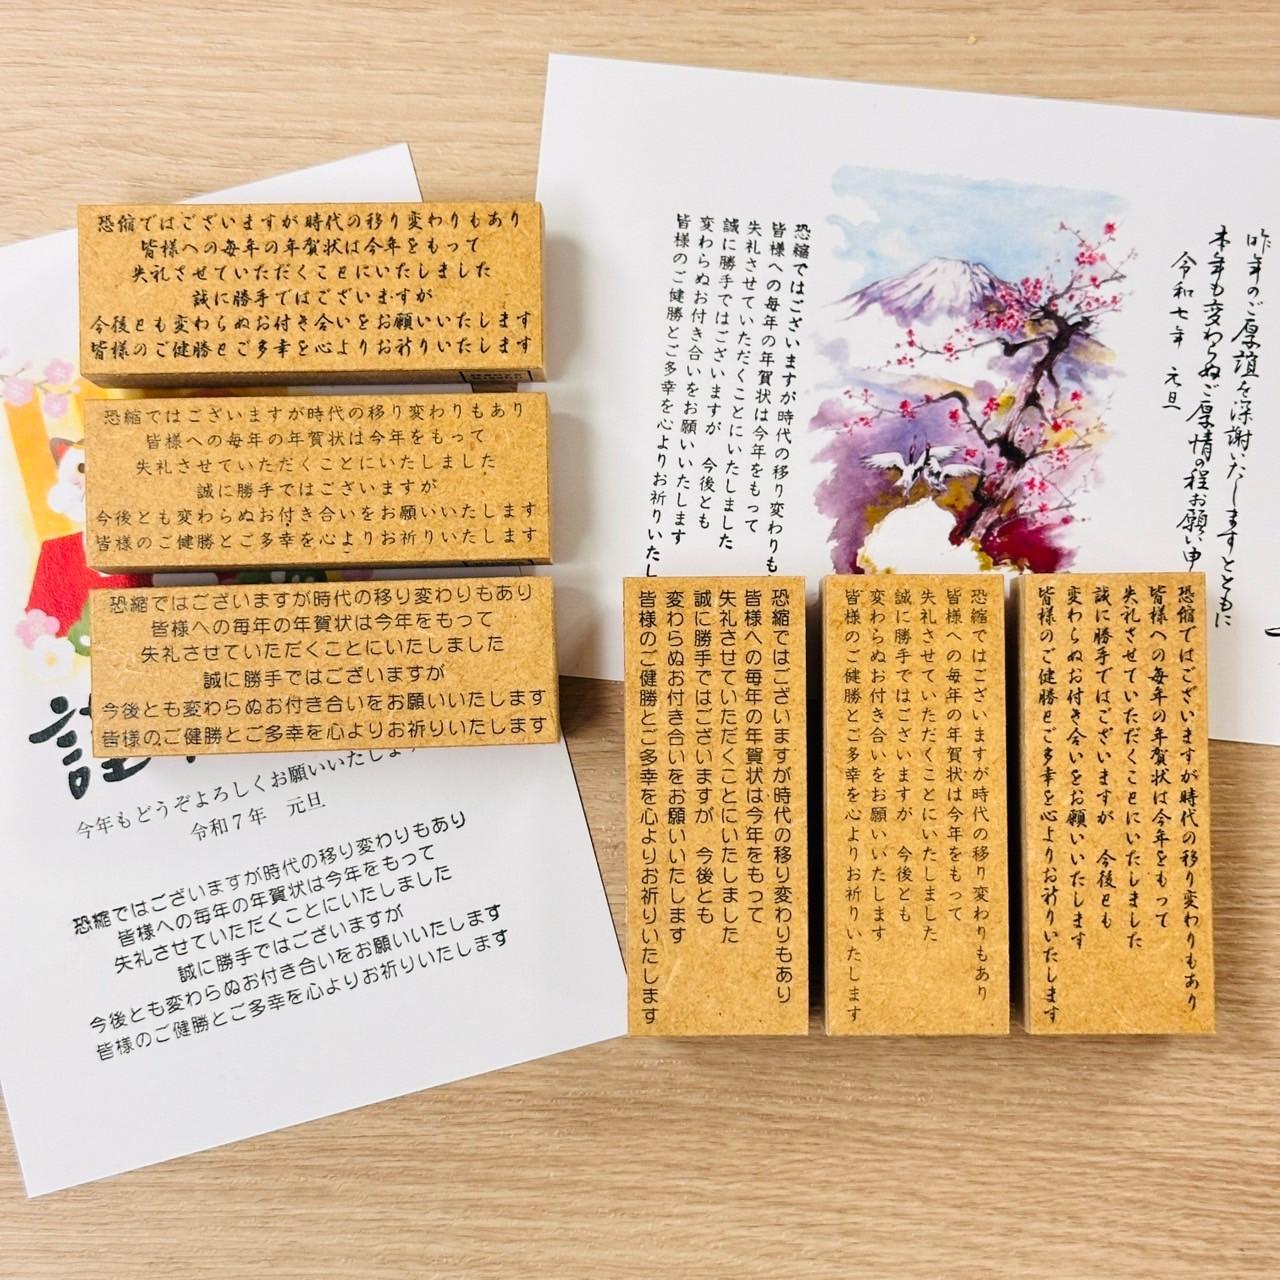 恐縮ではございますが時代の移り変わりもあり
皆様への毎年の年賀状は今年をもって
失礼させていただくことにいたしました
誠に勝手ではございますが
今後とも変わらぬお付き合いをお願いいたします
皆様のご健勝とご多幸を心よりお祈りいたします
恐縮ではございますが時代の移り変わりもあり
皆様への毎年の年賀状は今年をもって
失礼させていただくことにいたしました
誠に勝手ではございますが
今後とも変わらぬお付き合いをお願いいたします
皆様のご健勝とご多幸を心よりお祈りいたします
恐縮ではございますが時代の移り変わりもあり
皆様への毎年の年賀状は今年をもって
失礼させていただくことにいたしました
誠に勝手ではございますが
今後とも変わらぬお付き合いをお願いいたします
皆様のご健勝とご多幸を心よりお祈りいたします
今年もどうぞよろしくお願いいたします
令和7年 元旦
恐縮ではございますが時代の移り変わりもあり
皆様への毎年の年賀状は今年をもって
失礼させていただくことにいたしました
誠に勝手ではございますが
今後とも変わらぬお付き合いをお願いいたします
皆様のご健勝とご多幸を心よりお祈りいたします
昨年のご厚誼を深謝いたしますとともに
本年も変わらぬご厚情の程お願い申
令和七年 元旦
恐縮ではございますが時代の移り変わりも
皆様への毎年の年賀状は今年をもって
失礼させていただくことにいたしました
誠に勝手ではございますが 今後とも
変わらぬお付き合いをお願いいたします
皆様のご健勝とご多幸を心よりお祈りいたし
恐縮ではございますが時代の移り変わりもあり
皆様への毎年の年賀状は今年をもって
失礼させていただくことにいたしました
誠に勝手ではございますが 今後とも
変わらぬお付き合いをお願いいたします
皆様のご健勝とご多幸を心よりお祈りいたします
恐縮ではございますが時代の移り変わりもあり
皆様への毎年の年賀状は今年をもって
失礼させていただくことにいたしました
誠に勝手ではございますが 今後とも
変わらぬお付き合いをお願いいたします
皆様のご健勝とご多幸を心よりお祈りいたします
恐縮ではございますが時代の移り変わりもあり
皆様への毎年の年賀状は今年をもって
失礼させていただくことにいたしました
誠に勝手ではございますが 今後とも
変わらぬお付き合いをお願いいたします
皆様のご健勝とご多幸を心よりお祈りいたします